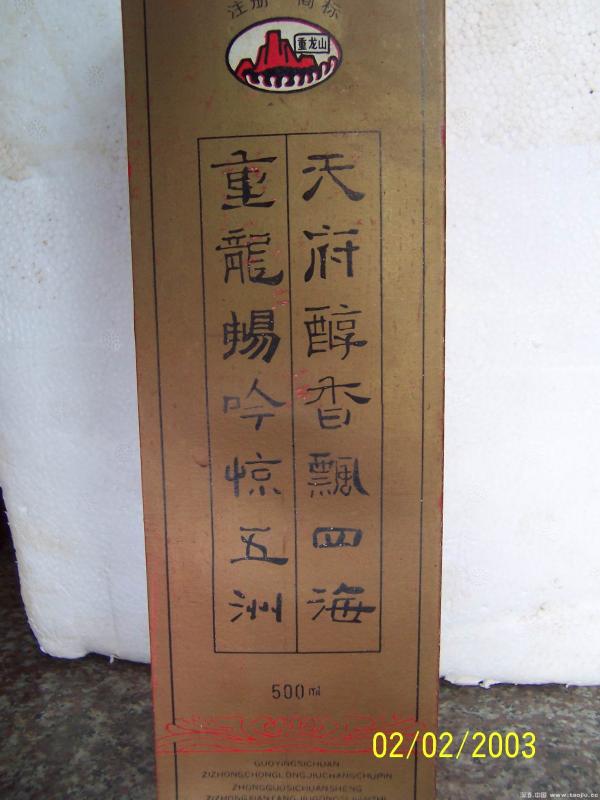 注册 商标
重龙山
天府醇香飘四海
重龍暢吟惊五洲
500ml
GUOYINGSICHUAN
ZIZHONGCHONGLONGJIUCHANGCHUPIN
ZHONGGUOSICHUANSHENG
02/02/2003